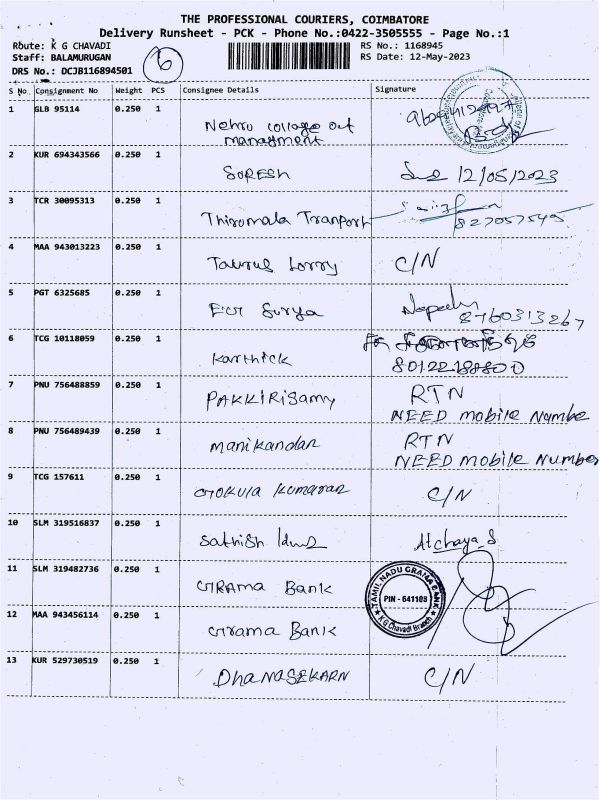 THE PROFESSIONAL COURIERS, COIMBATORE
Delivery Runsheet - PCK - Phone No.:0422-3505555 - Page No.:1
Route: K G CHAVADI RS No.: 1168945
Staff: BALAMURUGAN 6 RS Date: 12-May-2023
DRS No.: DCJB116894501
S No Consignment No Weight PCS Consignee Details Signature
1 GLB 95114 0.250 1
Nehru college out
managment
2 KUR 694343566 0.250 1
SURESH 12/05/2023
3 TCR 30095313 0.250 1
Thirumala Tranport
827057545
4 MAA 943013223 0.250 1
Taurus Lorry C/N
5 PGT 6325685 0.250 1
Surya
8760313267
6 TCG 10118059 0.250 1
Karthick
7 PNU 756488859 0.250 1 RTN
PAKKIRISamy NEED mobile Numbe
8 PNU 756489439 0.250 1 RTN
manikandan NEED mobile Number
9 TCG 157611 0.250 1
GOKULA Kumaran C/N
10 SLM 319516837 0.250 1
Sathish Atchaya S
11 SLM 319482736 0.250 1
GRAMA Bank
TAMIL NADU GRAMA BANK
PIN - 641105
K G Chavadi Branch
12 MAA 943456114 0.250 1
Grama Bank
13 KUR 529730519 0.250 1
DHANASEKARN C/N